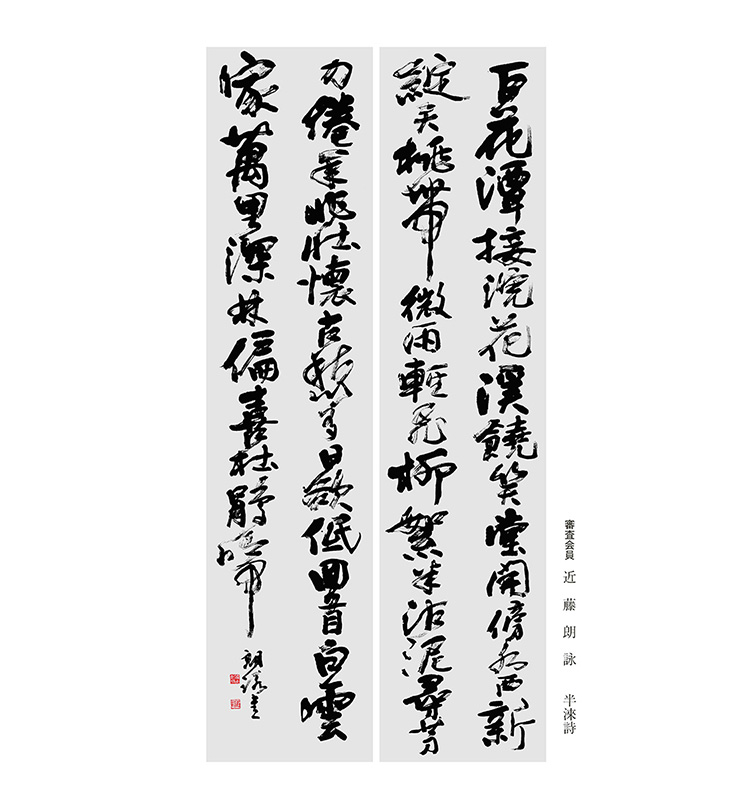 百花潭接浣花溪饒笑堂開傍水西新
綻夭桃帶微雨輕飛柳絮半沾泥尋芳
力倦年非壯懷古愁多日欲低回首白雲
家萬里深林偏喜杜鵑啼
朗詠書
審査会員 近藤朗詠 半淶詩